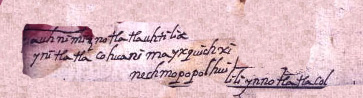 auh nimiz notlatlauhtilia
ynitlatla cohuani mayxquich xi
nechmopopolhui lili ynnotlatlacol